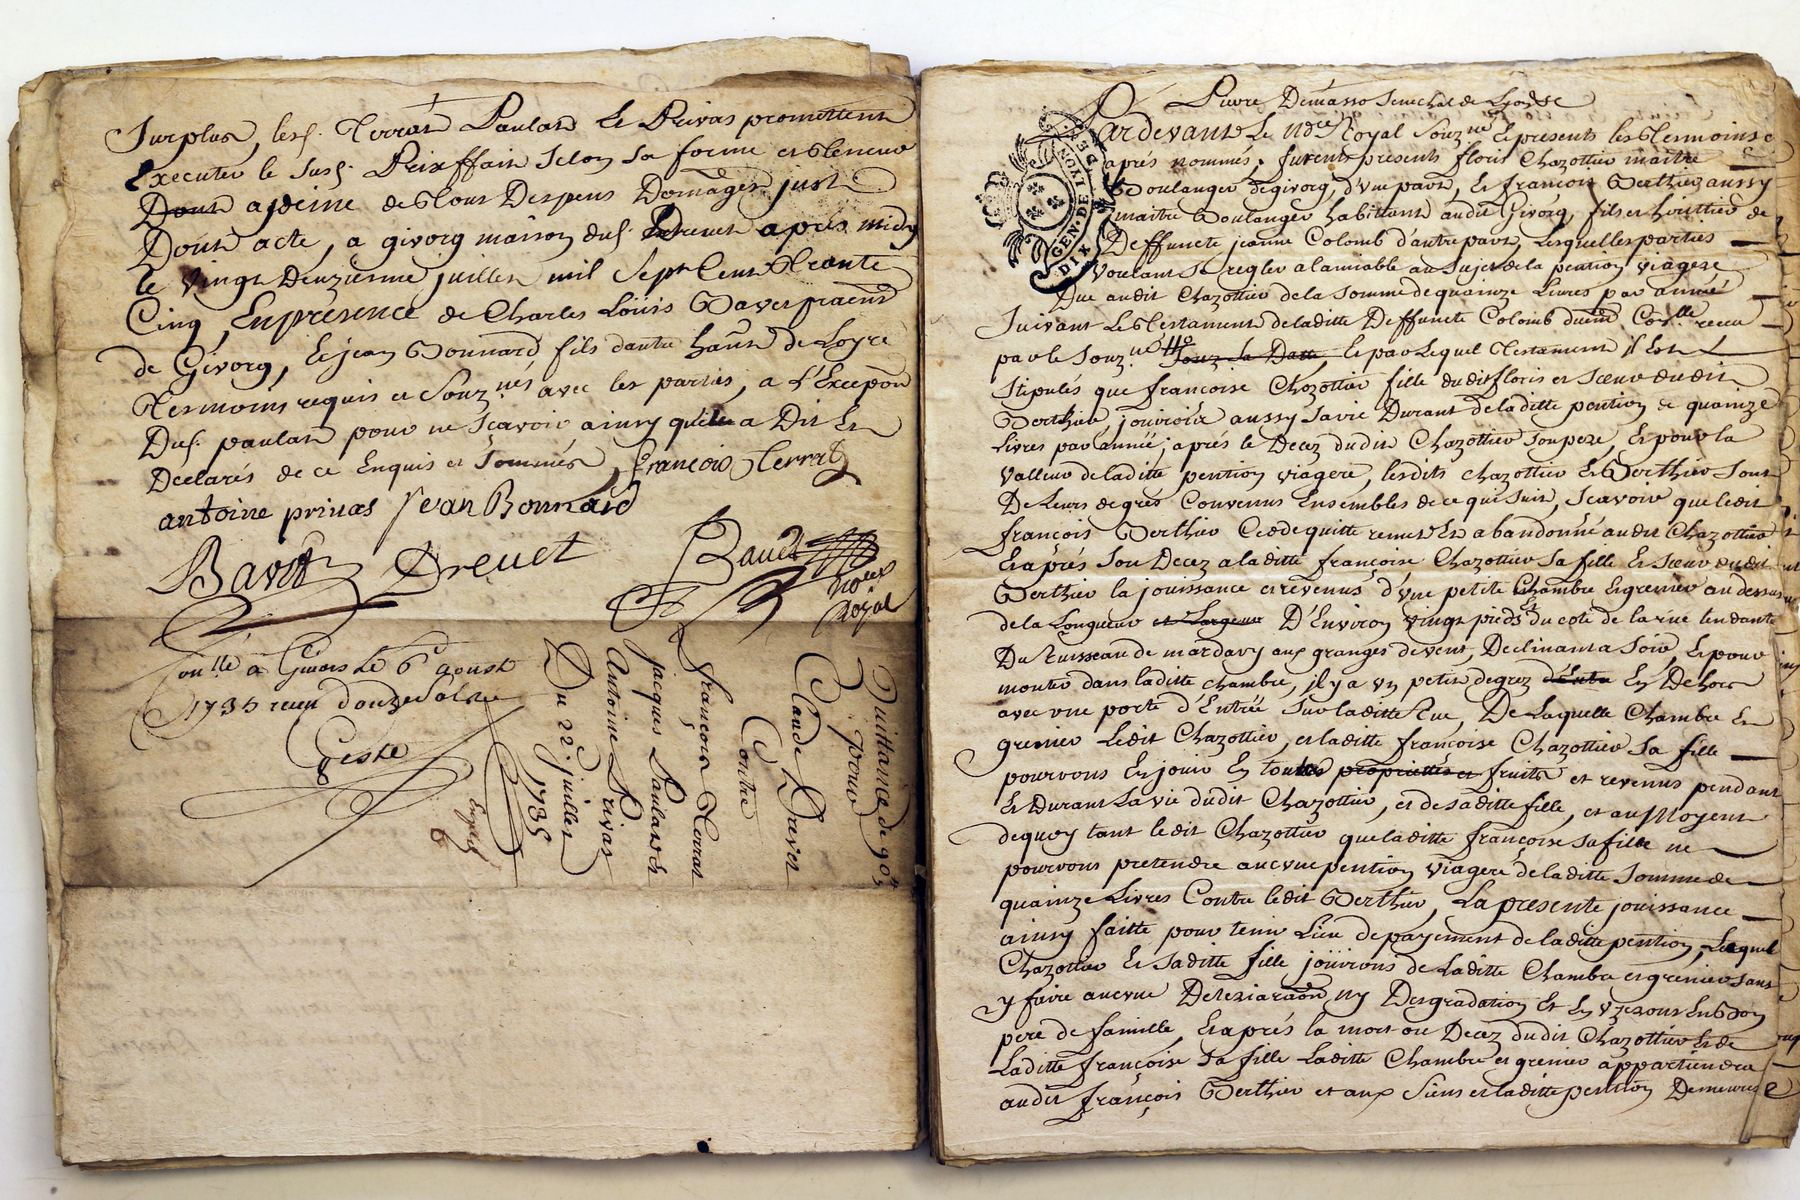 Surplus, lesd. Terrat Paulat Et Privas promettent
Executer le susd. Prixffait selon sa forme et teneur
Dont apeine de tous Despens Domages
Dont acte, a givorg maison dud. Drevet aprés midy
le vingt Deuzieme juillet mil sept Cent trente
Cinq, En presence de Charles Loüis
de Givorg, Et jean Bonnard fils dautre
tesmoins requis et Souz.nés avec les parties, a l'Excepon
Dud. paulat pour ne sçavoir ainsy quil a Dit Et
Declarés de ce Enquis et Sommés, françois Terrat
antoine privas Jean Bonnard
Drevet
Royal
Con.llé a Givors Le 6e aoust
1735 receu douze sols
Quittance de
pour
Claude Drevet
Contre
françois Terrat
jacques Paulat
Antoine Privas
Du 22e. juillet
1735
6
GEN DE DIX
Pierre Senechal de Lyon
Pardevant Le Nore Royal Souz.né Et presents les tesmoins
aprés nommés, furent presents floris Chazottier maitre
Boulanger de givorg, d'une part, Et françois Berthier aussy
maitre Boulanger habittant audit Givorg, fils et heritier de
Deffuncte jeanne Colomb d'autre part, Lesquelles parties
Voulant se regler a lamiable au sujet de la pention viagere
Due audit Chazottier de la Somme de quainze Livres par année
Suivant Le testament de laditte Deffuncte Colomb receu
par le Souz.né Souz sa Datte, Et par Lequel testament il Est
Stipulés que françoise Chazottier fille dudit floris et Soeur dudit
Berthier, jouiroit aussy sa vie Durant de laditte pention de quainze
Livres par année, aprés le Decez dudit Chazottier Son pere, Et pour la
Valleur de laditte pention viagere, lesdits chazottier Et Berthier Sont
De Leurs degrés Convenus Ensembles de ce qui Suit, Scavoir que ledit
françois Berthier Cede quitte remet Et abandonne audit Chazottier
Et aprés Son Decez a laditte françoise Chazottier Sa fille Et Soeur dudit
Berthier la jouissance et revenus d'une petite Chambre Et grenier au dessus
de la Longueur et Largeur D'Environ vingt pieds du coté de la rue tendante
Du Ruisseau de mardavy aux granges devent, Declinant a Soir, Et pour
monter dans laditte chambre, il y a un petit degrez En Dehors
avec une porte d'Entrée sur laditte Rue, De Laquelle Chambre Et
grenier Ledit Chazottier, et laditte françoise Chazottier Sa fille
pourront En jouir En toutes proprietés et fruits et revenus pendant
Et Durant La vie dudit Chazottier, et de Saditte fille, et au Moyent
dequoy tant ledit Chazottier que laditte françoise Sa fille ne
pourront pretendre aucune pention viagere de laditte Somme de
quainze Livres Contre ledit Berthier, La presente jouissance
ainsy faitte pour tenir Lieu de payement de laditte pention, Lequel
Chazottier Et Saditte fille joüiront de Laditte Chambre et grenier Sans
y faire aucune Deteriaraõn ny Desgradation Et En Uzeront En Bon
pere de famille, Et aprés la mort ou Decez dudit Chazottier Et de
Laditte françoise Sa fille Laditte Chambre et grenier appartiendra
audit françois Berthier et aux Siens et laditte pention Demeurera